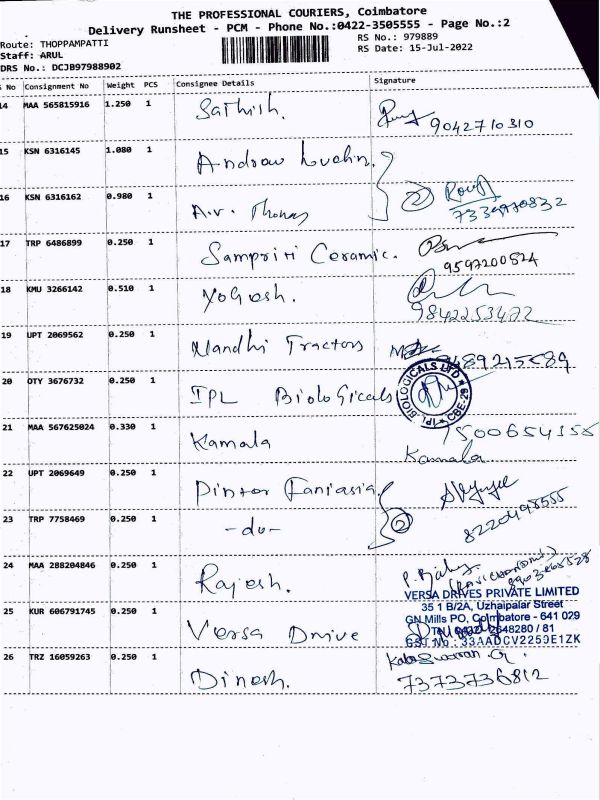 THE PROFESSIONAL COURIERS, Coimbatore
Delivery Runsheet - PCM - Phone No.:0422-3505555 - Page No.:2
Route: THOPPAMPATTI
RS No.: 979889
Staff: ARUL
RS Date: 15-Jul-2022
DRS No.: DCJB97988902
S No Consignment No Weight PCS Consignee Details Signature
14 MAA 565815916 1.250 1 Sathish.
9042710310
15 KSN 6316145 1.080 1 Andrew
16 KSN 6316162 0.980 1 A.v. Thomas
2
17 TRP 6486899 0.250 1 Sampriti Ceramic.
9597200524
18 KMU 3266142 0.510 1 Yogesh.
9842253472
19 UPT 2069562 0.250 1 Nandhi Tractors
20 OTY 3676732 0.250 1 IPL Biologicals
IPL BIOLOGICALS LTD
21 MAA 567625024 0.330 1 Kamala
Kamala
22 UPT 2069649 0.250 1
8220498555
23 TRP 7758469 0.250 1 -do-
2
24 MAA 288204846 0.250 1 Rajesh.
VERSA DRIVES PRIVATE LIMITED
35 1 B/2A, Uzhaipalar Street
25 KUR 606791745 0.250 1 Versa Drive
GN Mills PO, Coimbatore - 641 029
GST No : 33AADCV2259E1ZK
26 TRZ 16059263 0.250 1 Dinesh.
7373736812